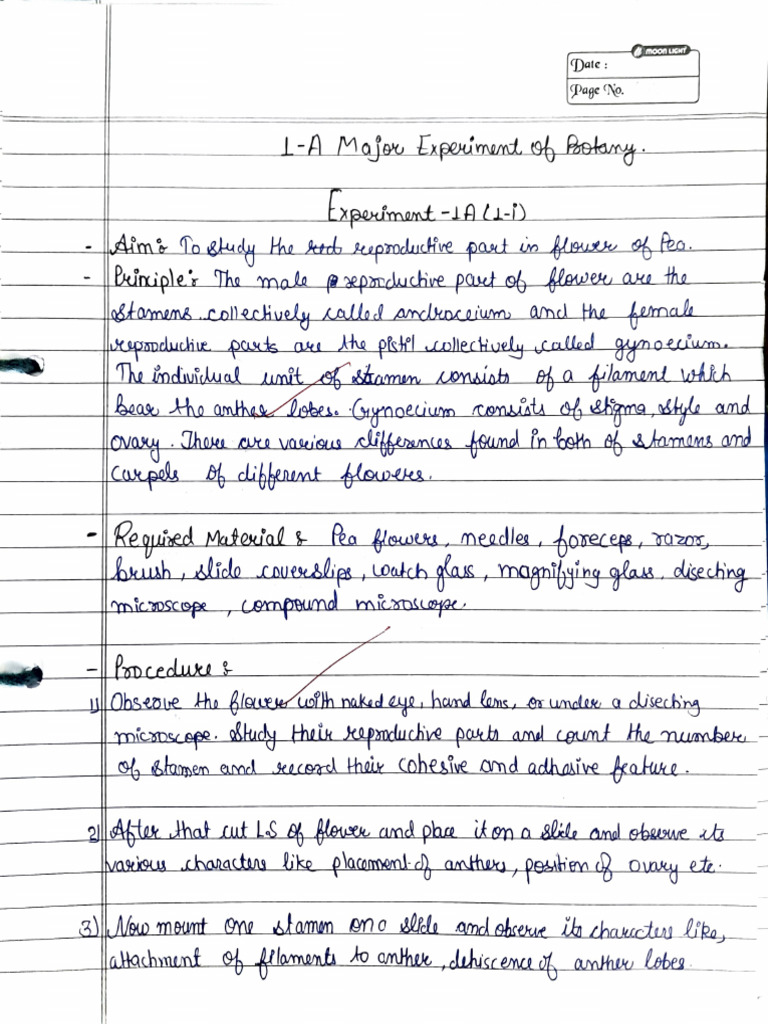 MOON LIGHT
Date :
Page No.
1-A Major Experiment of Botany.
Experiment -1A (1-i)
- Aim : To study the reproductive part in flower of Pea.
- Prinxiple : The male reproductive part of flower are the
stamens collectively called androceium and the female
reproductive parts are the pistil collectively called gynoecium.
The individual unit of stamen consists of a filament which
bear the anther lobes. Gynoecium consists of stigma, style and
ovary. There are various differences found in both of stamens and
carpels of different flowers.
- Required Material : Pea flowers, needles, foreceps, razor,
brush, slide coverslips, watch glass, magnifying glass, disecting
microscope, compound microscope.
- Procedure :
1) Observe the flower with naked eye, hand lens, or under a disecting
microscope. Study their reproductive parts and count the number
of stamen and record their cohesive and adhasive feature.
2) After that cut L.S of flower and place it on a slile and observe its
various characters like placement of anthers, position of ovary etc.
3) Now mount one stamen on a slide and observe its characters like,
attachment of filaments to anther, dehiscence of anther lobes.